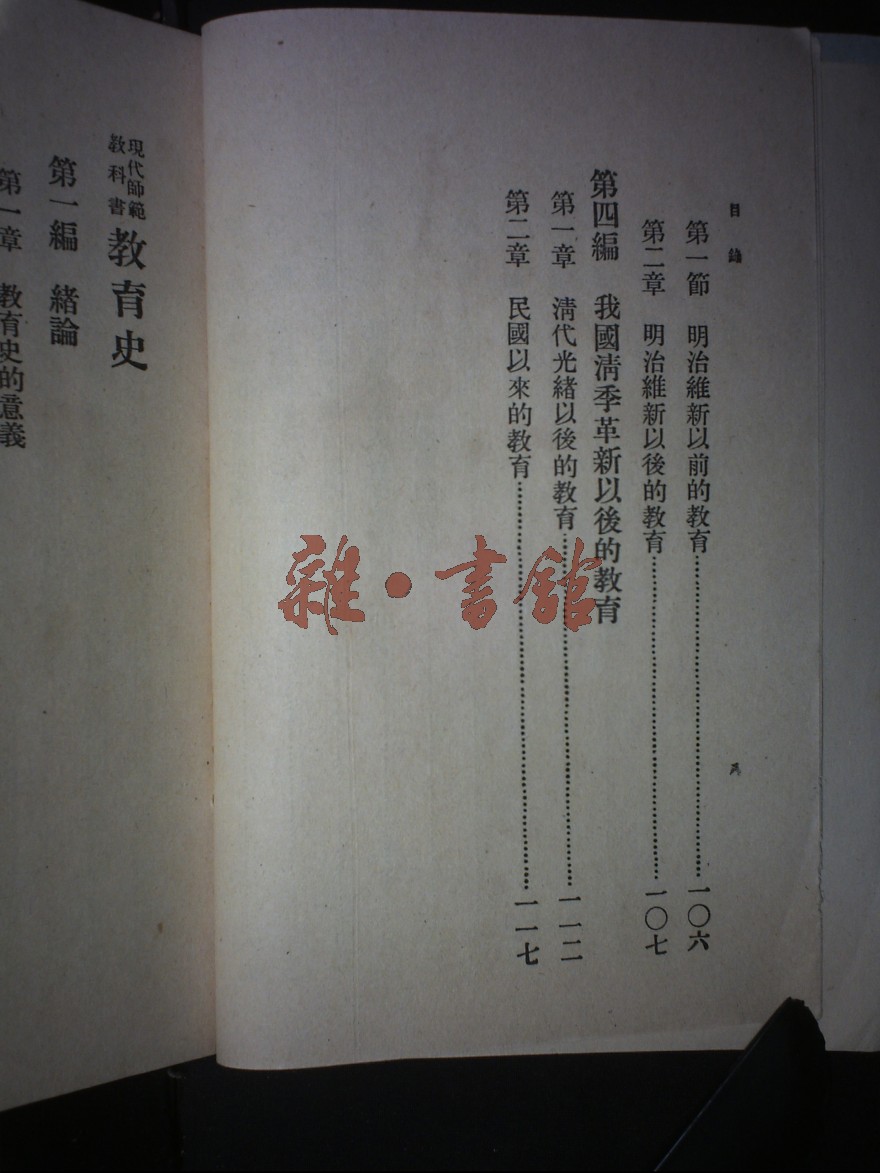 目錄
第一節 明治維新以前的教育……一〇六
第二章 明治維新以後的教育……一〇七
第四編 我國清季革新以後的教育
第一章 清代光緒以後的教育……一一二
第二章 民國以來的教育……一一七
雜·書館
現代師範教科書 教育史
第一編 緒論
第一章 教育史的意義